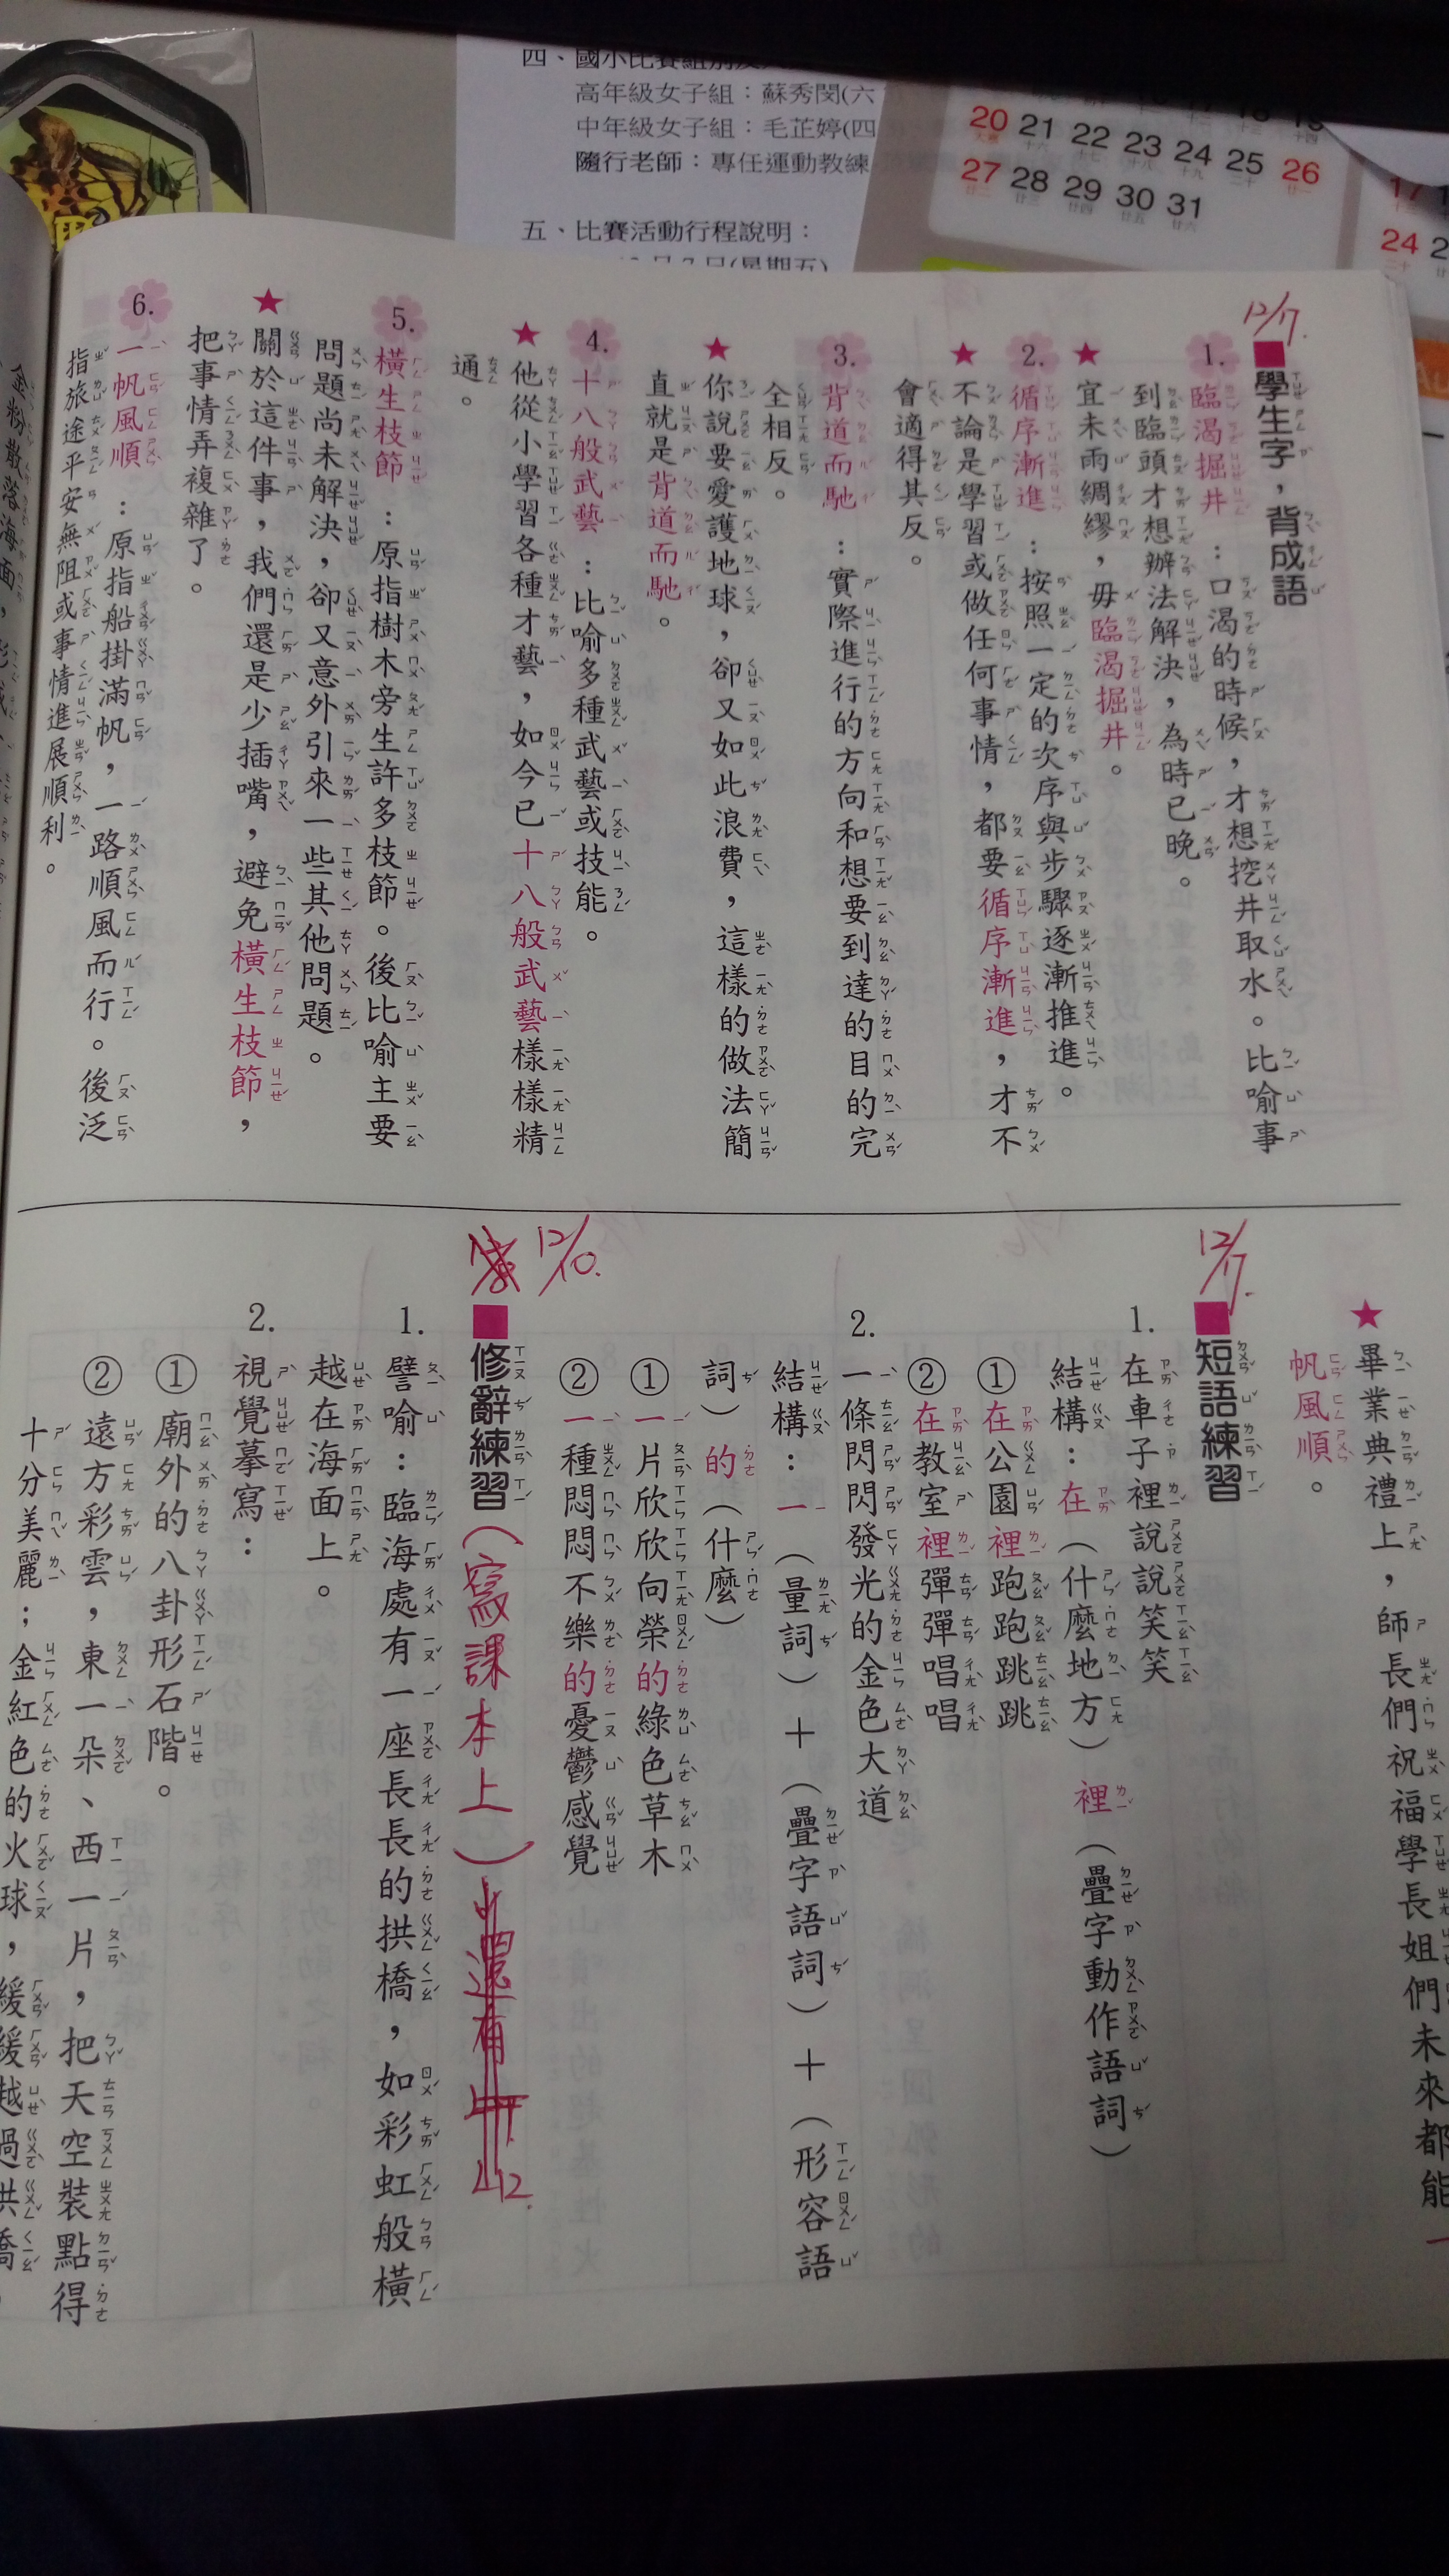 四、國小比賽組別及
高年級女子組：蘇秀閔(六
中年級女子組：毛芷婷(四
隨行老師：專任運動教練
五、比賽活動行程說明：
月7日(星期五)
20 21 22 23 24 25 26
27 28 29 30 31
17
24
12/17.
■學生字，背成語
1. 臨渴掘井：口渴的時候，才想挖井取水。比喻事
到臨頭才想辦法解決，為時已晚。
★宜未雨綢繆，毋臨渴掘井。
2. 循序漸進：按照一定的次序與步驟逐漸推進。
★不論是學習或做任何事情，都要循序漸進，才不
會適得其反。
3. 背道而馳：實際進行的方向和想要到達的目的完
全相反。
★你說要愛護地球，卻又如此浪費，這樣的做法簡
直就是背道而馳。
4. 十八般武藝：比喻多種武藝或技能。
★他從小學習各種才藝，如今已十八般武藝樣樣精
通。
5. 橫生枝節：原指樹木旁生許多枝節。後比喻主要
問題尚未解決，卻又意外引來一些其他問題。
★關於這件事，我們還是少插嘴，避免橫生枝節，
把事情弄複雜了。
6. 一帆風順：原指船掛滿帆，一路順風而行。後泛
指旅途平安無阻或事情進展順利。
★畢業典禮上，師長們祝福學長姐們未來都能一
帆風順。
12/17.
■短語練習
1. 在車子裡說說笑笑
結構：在（什麼地方）裡（疊字動作語詞）
①在公園裡跑跑跳跳
②在教室裡彈彈唱唱
2. 一條閃閃發光的金色大道
結構：一（量詞）＋（疊字語詞）＋（形容語
詞）的（什麼）
①一片欣欣向榮的綠色草木
②一種悶悶不樂的憂鬱感覺
12/10.
■修辭練習（寫課本上）
1. 譬喻：臨海處有一座長長的拱橋，如彩虹般橫
越在海面上。
2. 視覺摹寫：
①廟外的八卦形石階。
②遠方彩雲，東一朵、西一片，把天空裝點得
十分美麗；金紅色的火球，緩緩越過拱橋，
金粉散落海面，